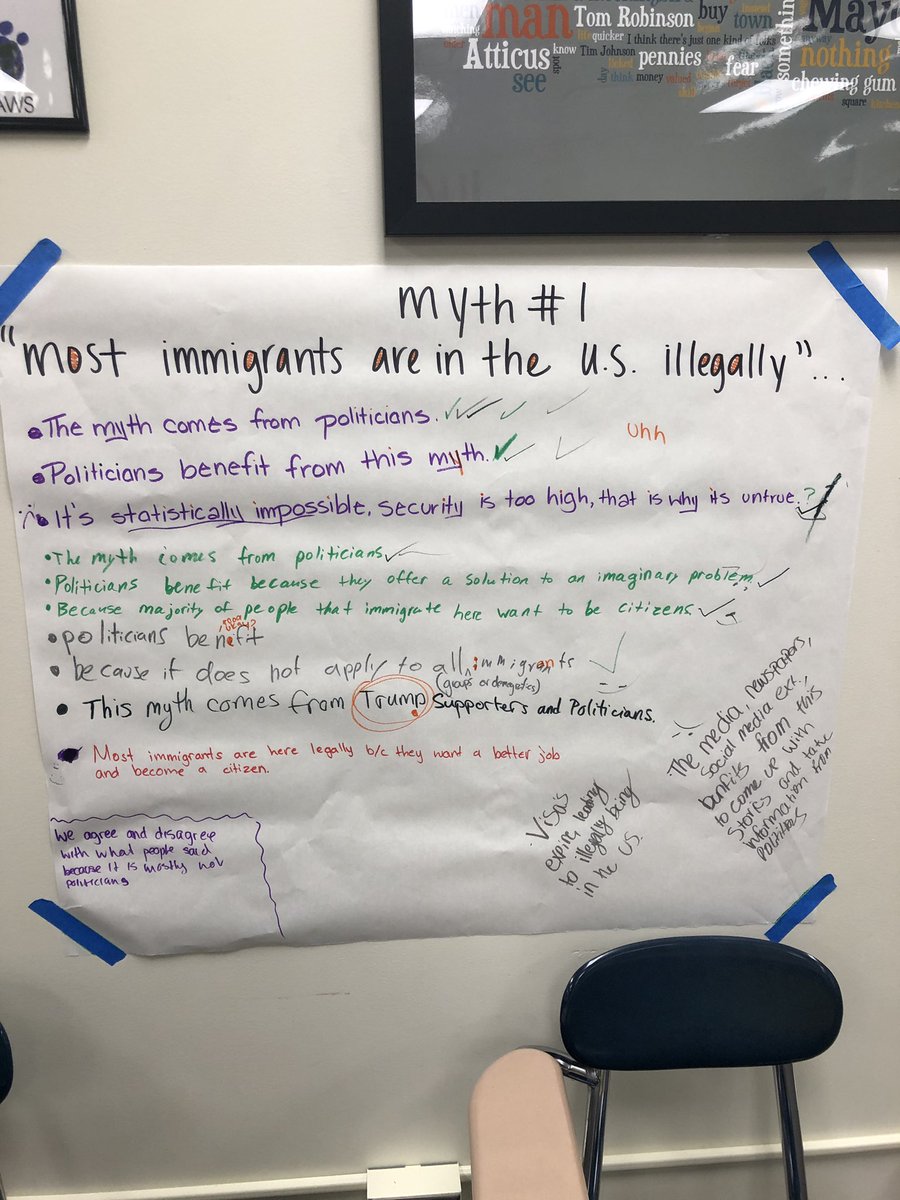 AWS
man
Tom Robinson
buy
town
something
Atticus
know
quicker
I think there's just one kind of folks
Tim Johnson
pennies
nothing
see
spot
think
money
fear
chewing gum
square
Myth #1
"most immigrants are in the U.S. illegally"...
The myth comes from politicians.
Uhh
Politicians benefit from this myth.
It's statistically impossible, security is too high, that is why its untrue.?
The myth comes from politicians
Politicians benefit because they offer a solution to an imaginary problem
Because majority of people that immigrate here want to be citizens
politicians benefit
because it does not apply to all immigrants
(groups or
This myth comes from Trump Supporters and Politicians.
Most immigrants are here legally b/c they want a better job
and become a citizen.
We agree and disagree
with what people said
because it is mostly not
politicians
Visa's
expire, leading
to illegally being
in he U.S.
The media, newspapers,
social media ext.,
benfits from this
to come up with
storys and take
information from